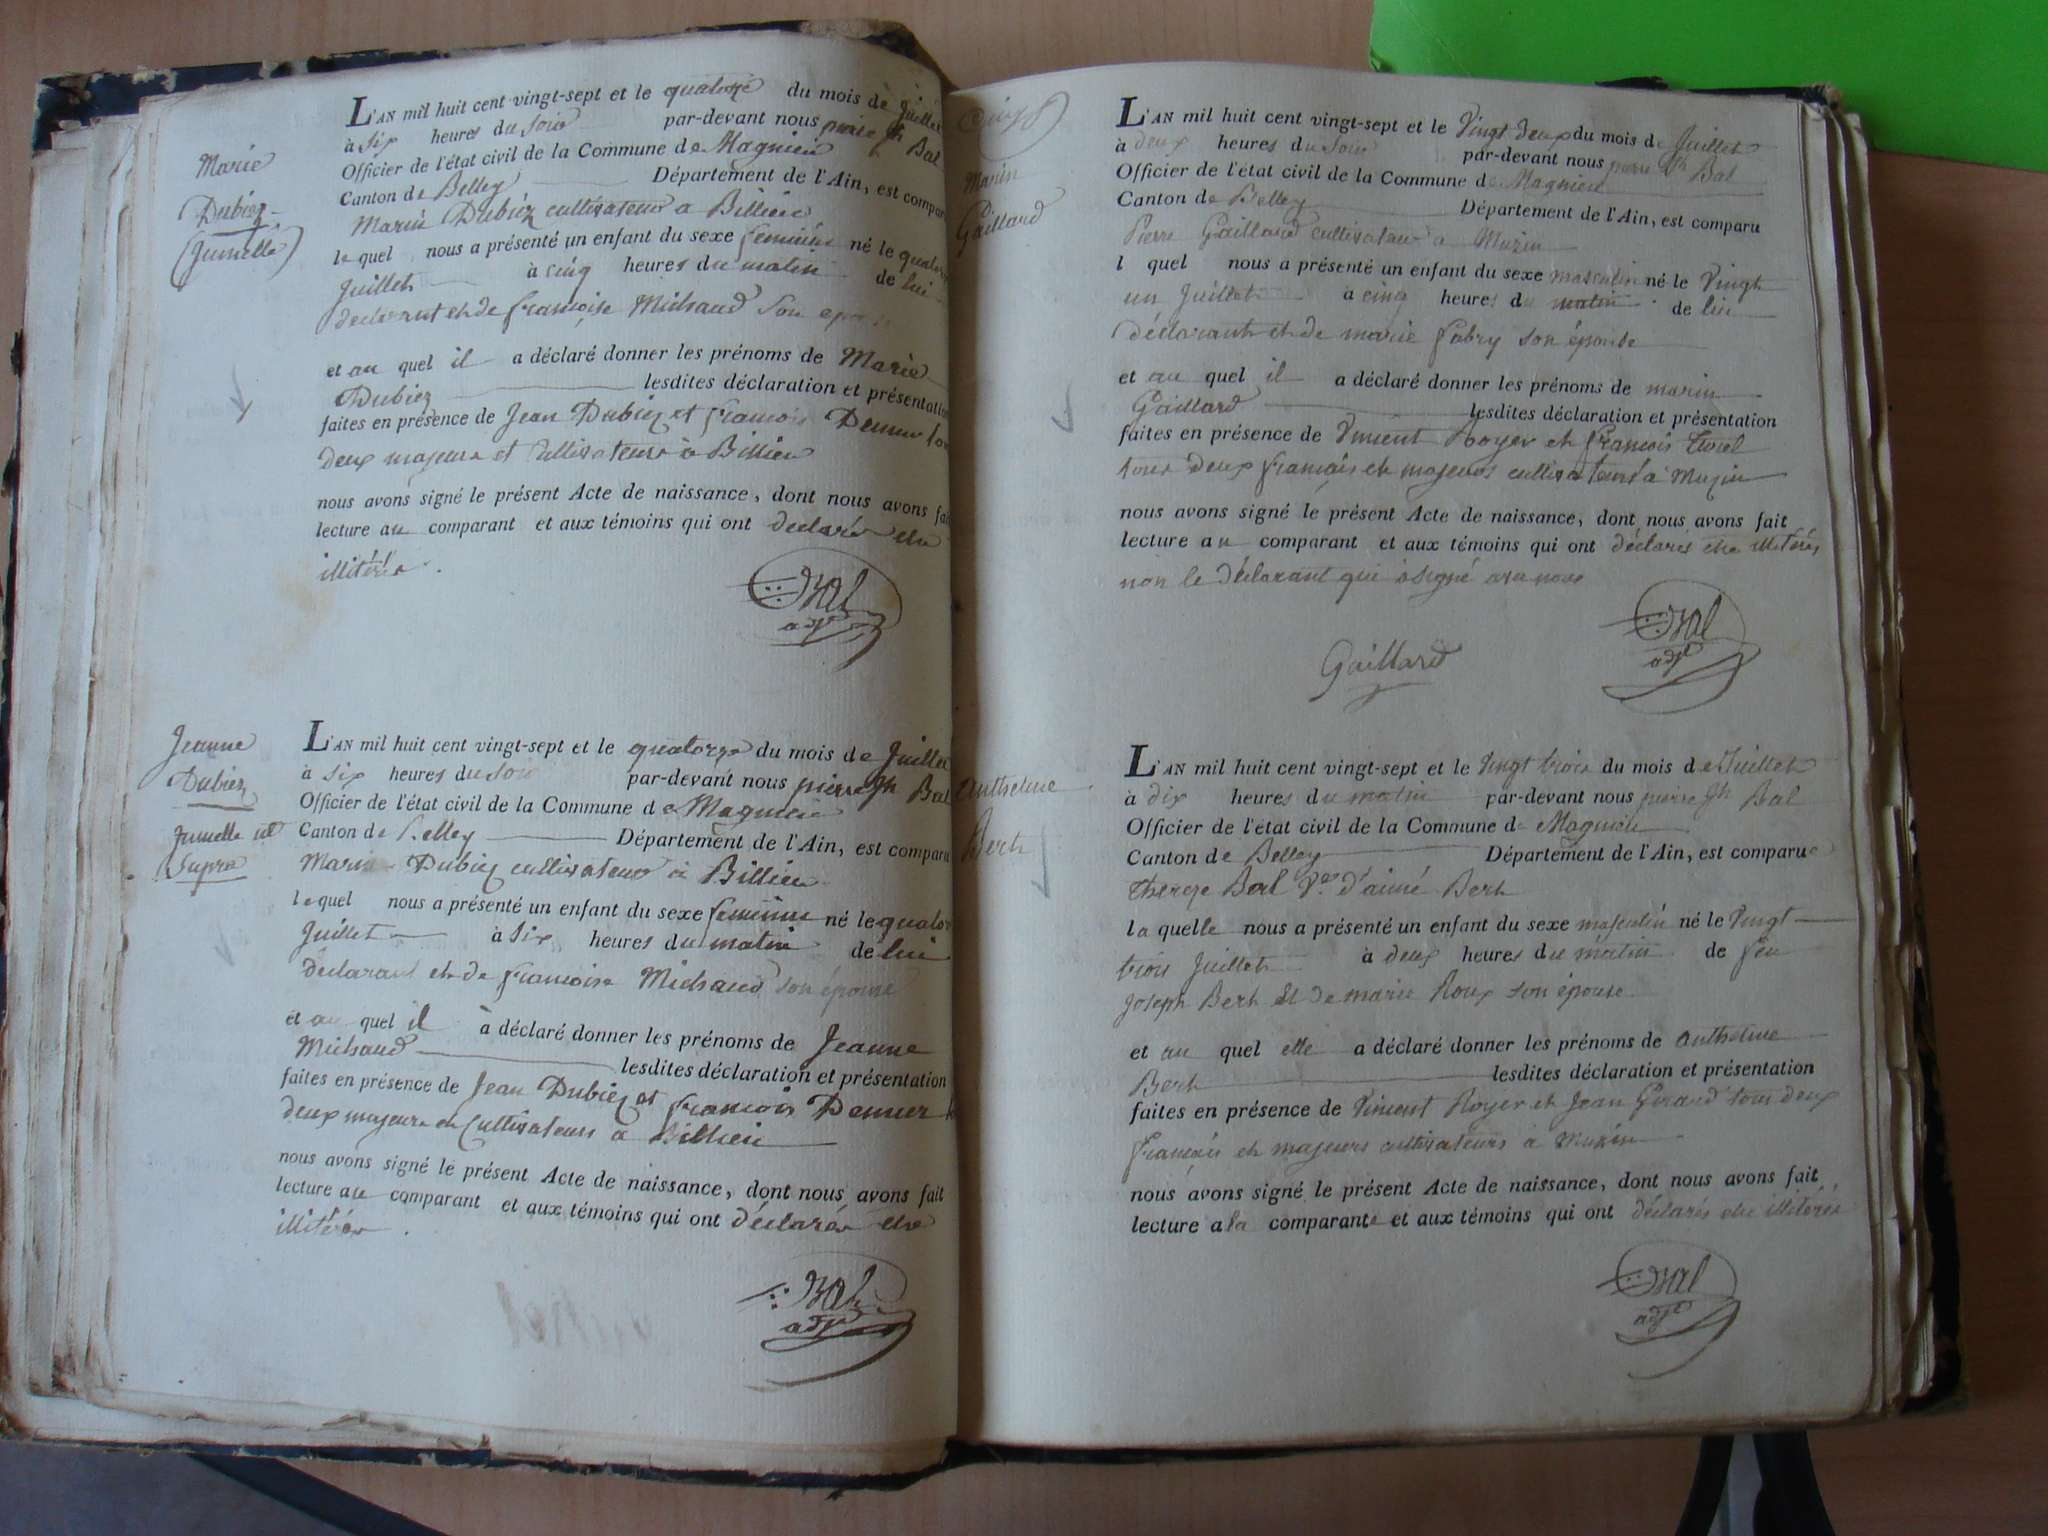 Marie
Dubiez
(Jumelle)
L'AN mil huit cent vingt-sept et le quatorze du mois de Juillet
à six heures du soir par-devant nous pierre Jh Bal
Officier de l'état civil de la Commune de Magnieu
Canton de Belley Département de l'Ain, est compar
Marin Dubiez cultivateur a Billieu
le quel nous a présenté un enfant du sexe feminin né le quator
Juillet à cinq heures du matin de lui
declarant et de françoise Michaud Son epouse
et au quel il a déclaré donner les prénoms de Marie
Dubiez lesdites déclaration et présentation
faites en présence de Jean Dubiez et francois tou
deux majeurs et Cultivateurs à Billieu
nous avons signé le présent Acte de naissance, dont nous avons fai
lecture au comparant et aux témoins qui ont declarés etre
illitérés.
Bal
adjt
Jeanne
Dubiez
Jumelle ut
Supra
L'AN mil huit cent vingt-sept et le quatorze du mois de Juillet
à six heures du soir par-devant nous pierre Jh Bal
Officier de l'état civil de la Commune de Magnieu
Canton de Belley Département de l'Ain, est comparu
Marin Dubiez cultivateur à Billieu
lequel nous a présenté un enfant du sexe feminin né le quator
Juillet à six heures du matin de lui
déclarant et de françoise Michaud son épouse
et au quel il à déclaré donner les prénoms de Jeanne
Michaud lesdites déclaration et présentation
faites en présence de Jean Dubiez et francois
deux majeurs et Cultivateurs a Billieu
nous avons signé le présent Acte de naissance, dont nous avons fait
lecture au comparant et aux témoins qui ont déclarés etre
illitérés.
Bal
adjt
Marin
Gaillard
L'AN mil huit cent vingt-sept et le Vingt deux du mois de Juillet
à deux heures du soir par-devant nous pierre Jh Bal
Officier de l'état civil de la Commune de Magnieu
Canton de Belley Département de l'Ain, est comparu
Pierre Gaillard cultivateur a Muzin
l quel nous a présenté un enfant du sexe masculin né le Vingt
un Juillet à cinq heures du matin de lui
déclarant et de marie fabry son épouse
et au quel il a déclaré donner les prénoms de marin
Gaillard lesdites déclaration et présentation
faites en présence de Vincent Royer et françois
tous deux français et majeurs cultivateurs a Muzin
nous avons signé le présent Acte de naissance, dont nous avons fait
lecture au comparant et aux témoins qui ont déclarés etre illitérés
non le déclarant qui à signé avec nous
Gaillard
Bal
adjt
anthelme
Bert
L'AN mil huit cent vingt-sept et le Vingt trois du mois de Juillet
à dix heures du matin par-devant nous pierre Jh Bal
Officier de l'état civil de la Commune de Magnieu
Canton de Belley Département de l'Ain, est comparue
Therese Bal Ve d'aimé Bert
la quelle nous a présenté un enfant du sexe masculin né le Vingt
trois Juillet à deux heures du matin de feu
Joseph Bert et de marie Roux son épouse
et au quel elle a déclaré donner les prénoms de anthelme
Bert lesdites déclaration et présentation
faites en présence de Vincent Royer et Jean Girard tous deux
français et majeurs cultivateurs à Muzin
nous avons signé le présent Acte de naissance, dont nous avons fait
lecture a la comparante et aux témoins qui ont déclarés etre illitérés
Bal
adjt